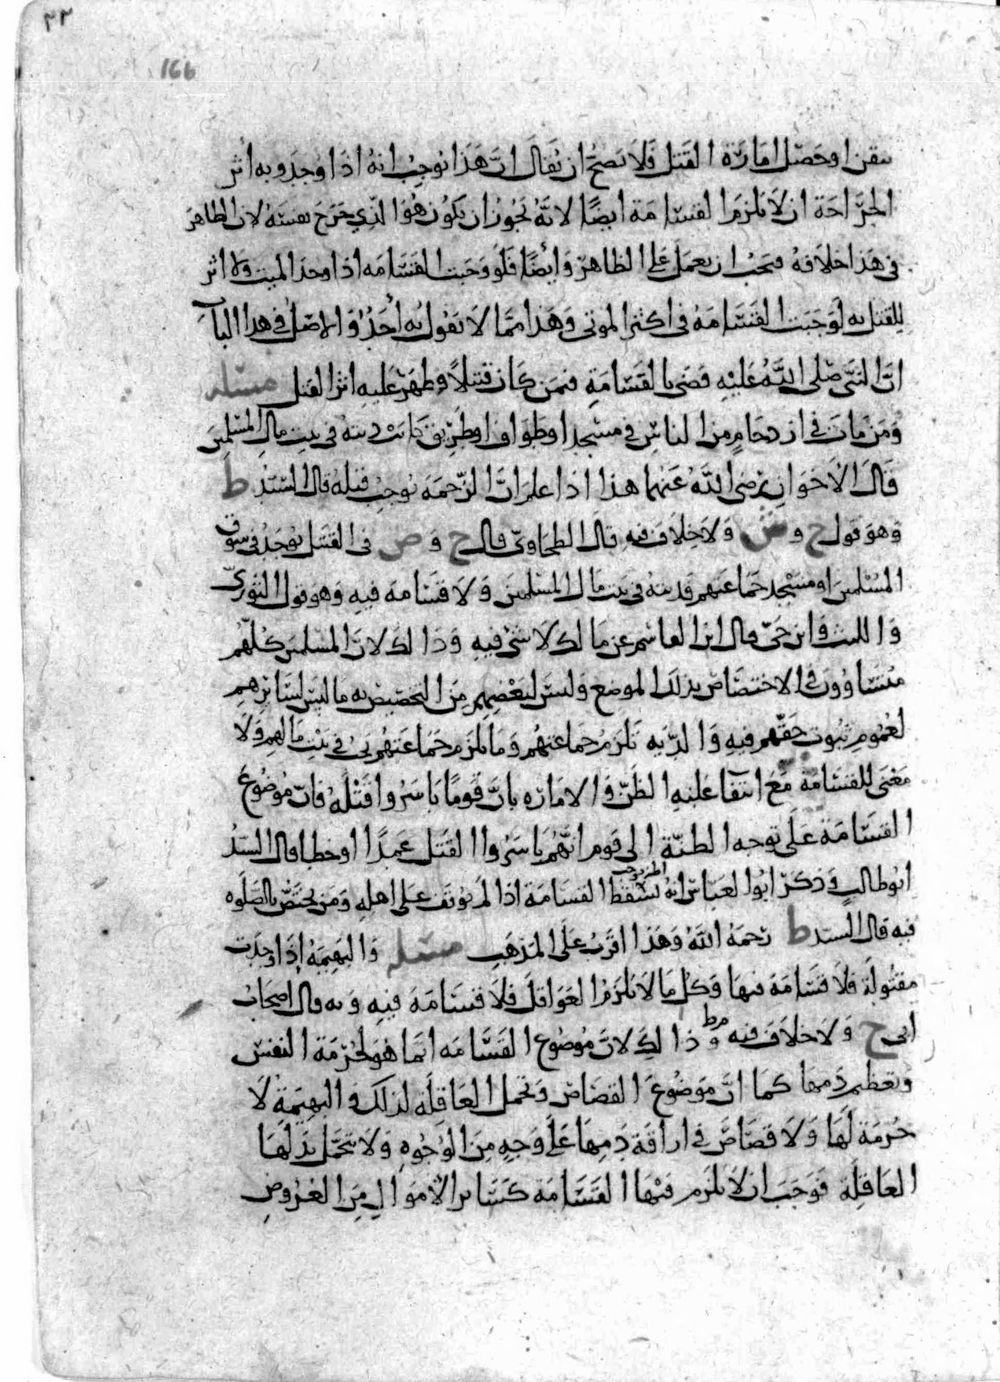 ٢٢
166
تيقن او حصل امارة القتل فلا يصح ان يقال ان هذا يوجب انه اذا وجد وبه اثر
الجراحة ان لا تلزم القسامة ايضًا لانه يجوز ان يكون هو الذي جرح نفسه لان الظاهر
في هذا خلافه فيجب ان يعمل على الظاهر وأيضًا فلو وجبت القسامه اذا وجد الميت ولا اثر
للقتل به لوجبت القسامه في اكثر الموتى وهذا مما لا يقول به أحدٌ والاصل في هذا الباب
ان النبي صلى الله عليه قضى بالقسامة فيمن كان قتيلاً وظهر عليه اثر القتل مسئله
ومن مات في ازدحام من الناس في مسجد او طواف او طريق كانت ديته في بيت مال المسلمين
قال الاخوان رضي الله عنهما هذا اذا علم ان الزحمه توجب قتله قال السيد ط
وهو قول ح و ش ولا خلاف فيه قال الطحاوي قال ح و ص في القتيل يوجد في سوق
المسلمين او مسجد جماعتهم فديته في بيت مال المسلمين ولا قسامه فيه وهو قول الثوري
والليث وابن حي قال ابن القاسم عن مالك لا شئ فيه وذلك لان المسلمين كلهم
متساوون في الاختصاص بذلك الموضع وليس لبعضهم من التخصيص به ما ليس لسائرهم
لعموم ثبوت حقهم فيه والديه تلزم جماعتهم وما يلزم جماعتهم يجب في بيت مالهم ولا
معنى للقسامة مع انتفا غلبه الظن والاماره بان قومًا باشروا قتله فان موضوع
القسامة على توجه الظنة الى قوم انهم باشروا القتل عمدًا او خطا قال السيد
ابو طالب وذكر ابو العباس انه تسقط القسامة اذا لم يوقف على اهله ومن يختص بالصلوه
فيه قال السيد ط رحمه الله وهذا اقرب على المذهب مسئله والبهيمه إذا وجدت
مقتولة فلا قسامة فيها وكل ما لا يلزم العواقل فلا قسامة فيه وبه قال اصحاب
ابي ح ولا خلاف فيه وذلك لان موضوع القسامه انما هو لحرمة النفس
وتعظيم دمها كما ان موضوع القصاص وتحمل العاقله لذلك والبهيمة لا
حرمة لها ولا قصاص في اراقة دمها على وجه من الوجوه ولا يتحمل بدلها
العاقلة فوجب ان لا يلزم فيها القسامة كسائر الاموال من العروض